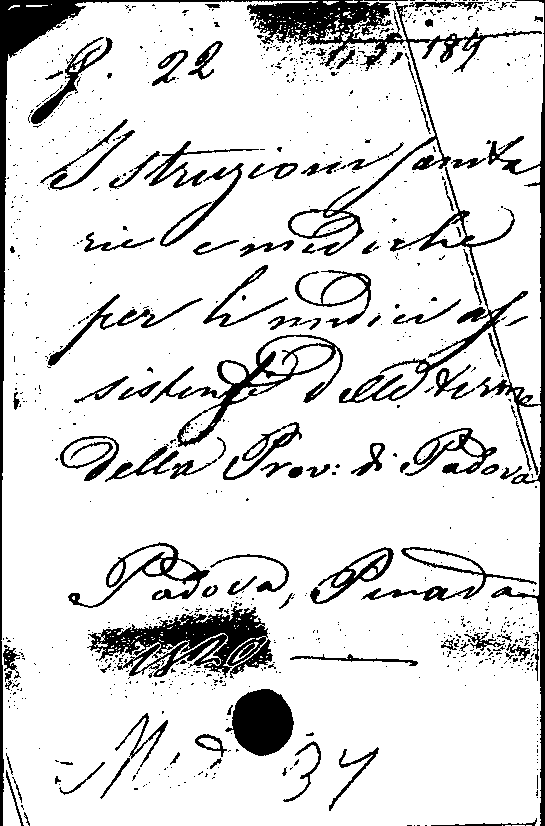 P. 22 1, 5, 189
Istruzioni sanita-
rie e mediche
per li medici as-
sistenti delle terme
della Prov: di Padova
Padova, Penada
1820
Med 37